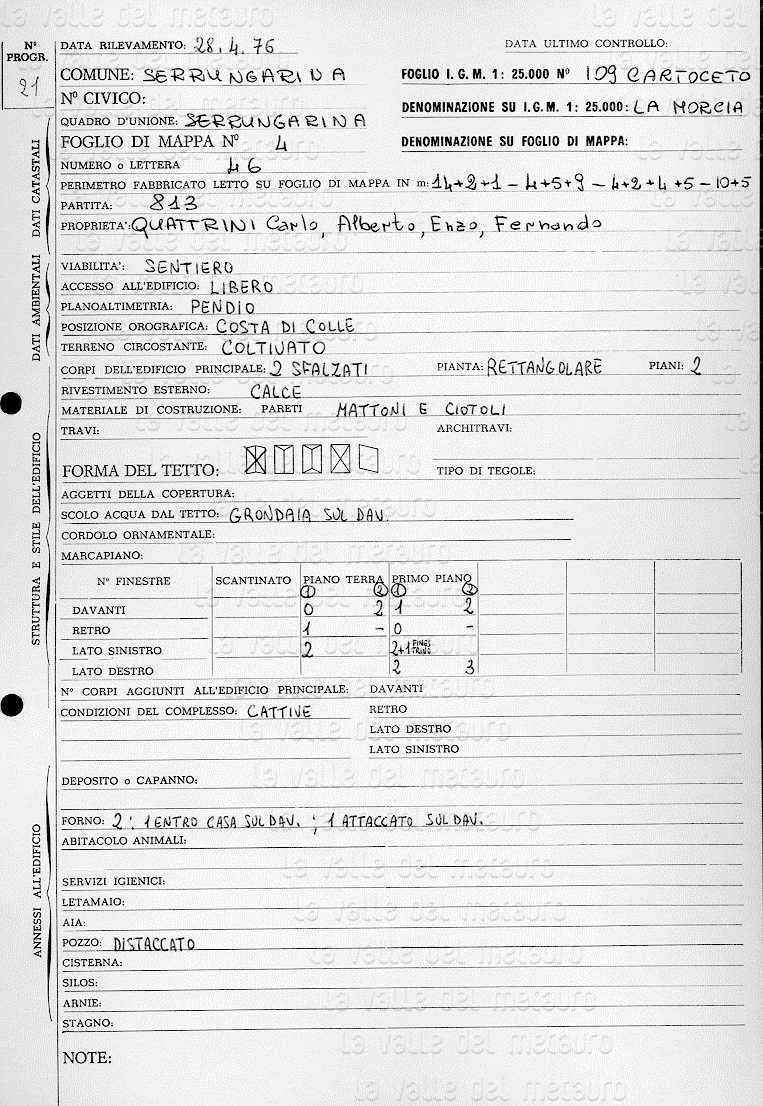 N° PROGR. 21
DATA RILEVAMENTO: 28.4.76 DATA ULTIMO CONTROLLO:
COMUNE: SERRUNGARINA FOGLIO I.G.M. 1: 25.000 N° 109 CARTOCETO
N° CIVICO: DENOMINAZIONE SU I.G.M. 1: 25.000: LA MORCIA
QUADRO D'UNIONE: SERRUNGARINA
FOGLIO DI MAPPA N° 4 DENOMINAZIONE SU FOGLIO DI MAPPA:
NUMERO o LETTERA 46
PERIMETRO FABBRICATO LETTO SU FOGLIO DI MAPPA IN m: 14+2+1-4+5+9-4+2+4+5-10+5
PARTITA: 813
PROPRIETA': QUATTRINI Carlo, Alberto, Enzo, Fernando
DATI CATASTALI
VIABILITA': SENTIERO
ACCESSO ALL'EDIFICIO: LIBERO
PLANOALTIMETRIA: PENDIO
POSIZIONE OROGRAFICA: COSTA DI COLLE
TERRENO CIRCOSTANTE: COLTIVATO
DATI AMBIENTALI
CORPI DELL'EDIFICIO PRINCIPALE: 2 SFALZATI PIANTA: RETTANGOLARE PIANI: 2
RIVESTIMENTO ESTERNO: CALCE
MATERIALE DI COSTRUZIONE: PARETI MATTONI E CIOTOLI
TRAVI: ARCHITRAVI:
FORMA DEL TETTO: TIPO DI TEGOLE:
AGGETTI DELLA COPERTURA:
SCOLO ACQUA DAL TETTO: GRONDAIA SUL DAV.
CORDOLO ORNAMENTALE:
MARCAPIANO:
N° FINESTRE SCANTINATO PIANO TERRA PRIMO PIANO
1 2 1 2
DAVANTI 0 2 1 2
RETRO 1 - 0 -
LATO SINISTRO 2 2+1 FINESTRINO
LATO DESTRO 2 3
STRUTTURA E STILE DELL'EDIFICIO
N° CORPI AGGIUNTI ALL'EDIFICIO PRINCIPALE: DAVANTI
CONDIZIONI DEL COMPLESSO: CATTIVE RETRO
LATO DESTRO
LATO SINISTRO
DEPOSITO o CAPANNO:
FORNO: 2: 1 ENTRO CASA SUL DAV.; 1 ATTACCATO SUL DAV.
ABITACOLO ANIMALI:
SERVIZI IGIENICI:
LETAMAIO:
AIA:
POZZO: DISTACCATO
CISTERNA:
SILOS:
ARNIE:
STAGNO:
ANNESSI ALL'EDIFICIO
NOTE:
la valle del metauro